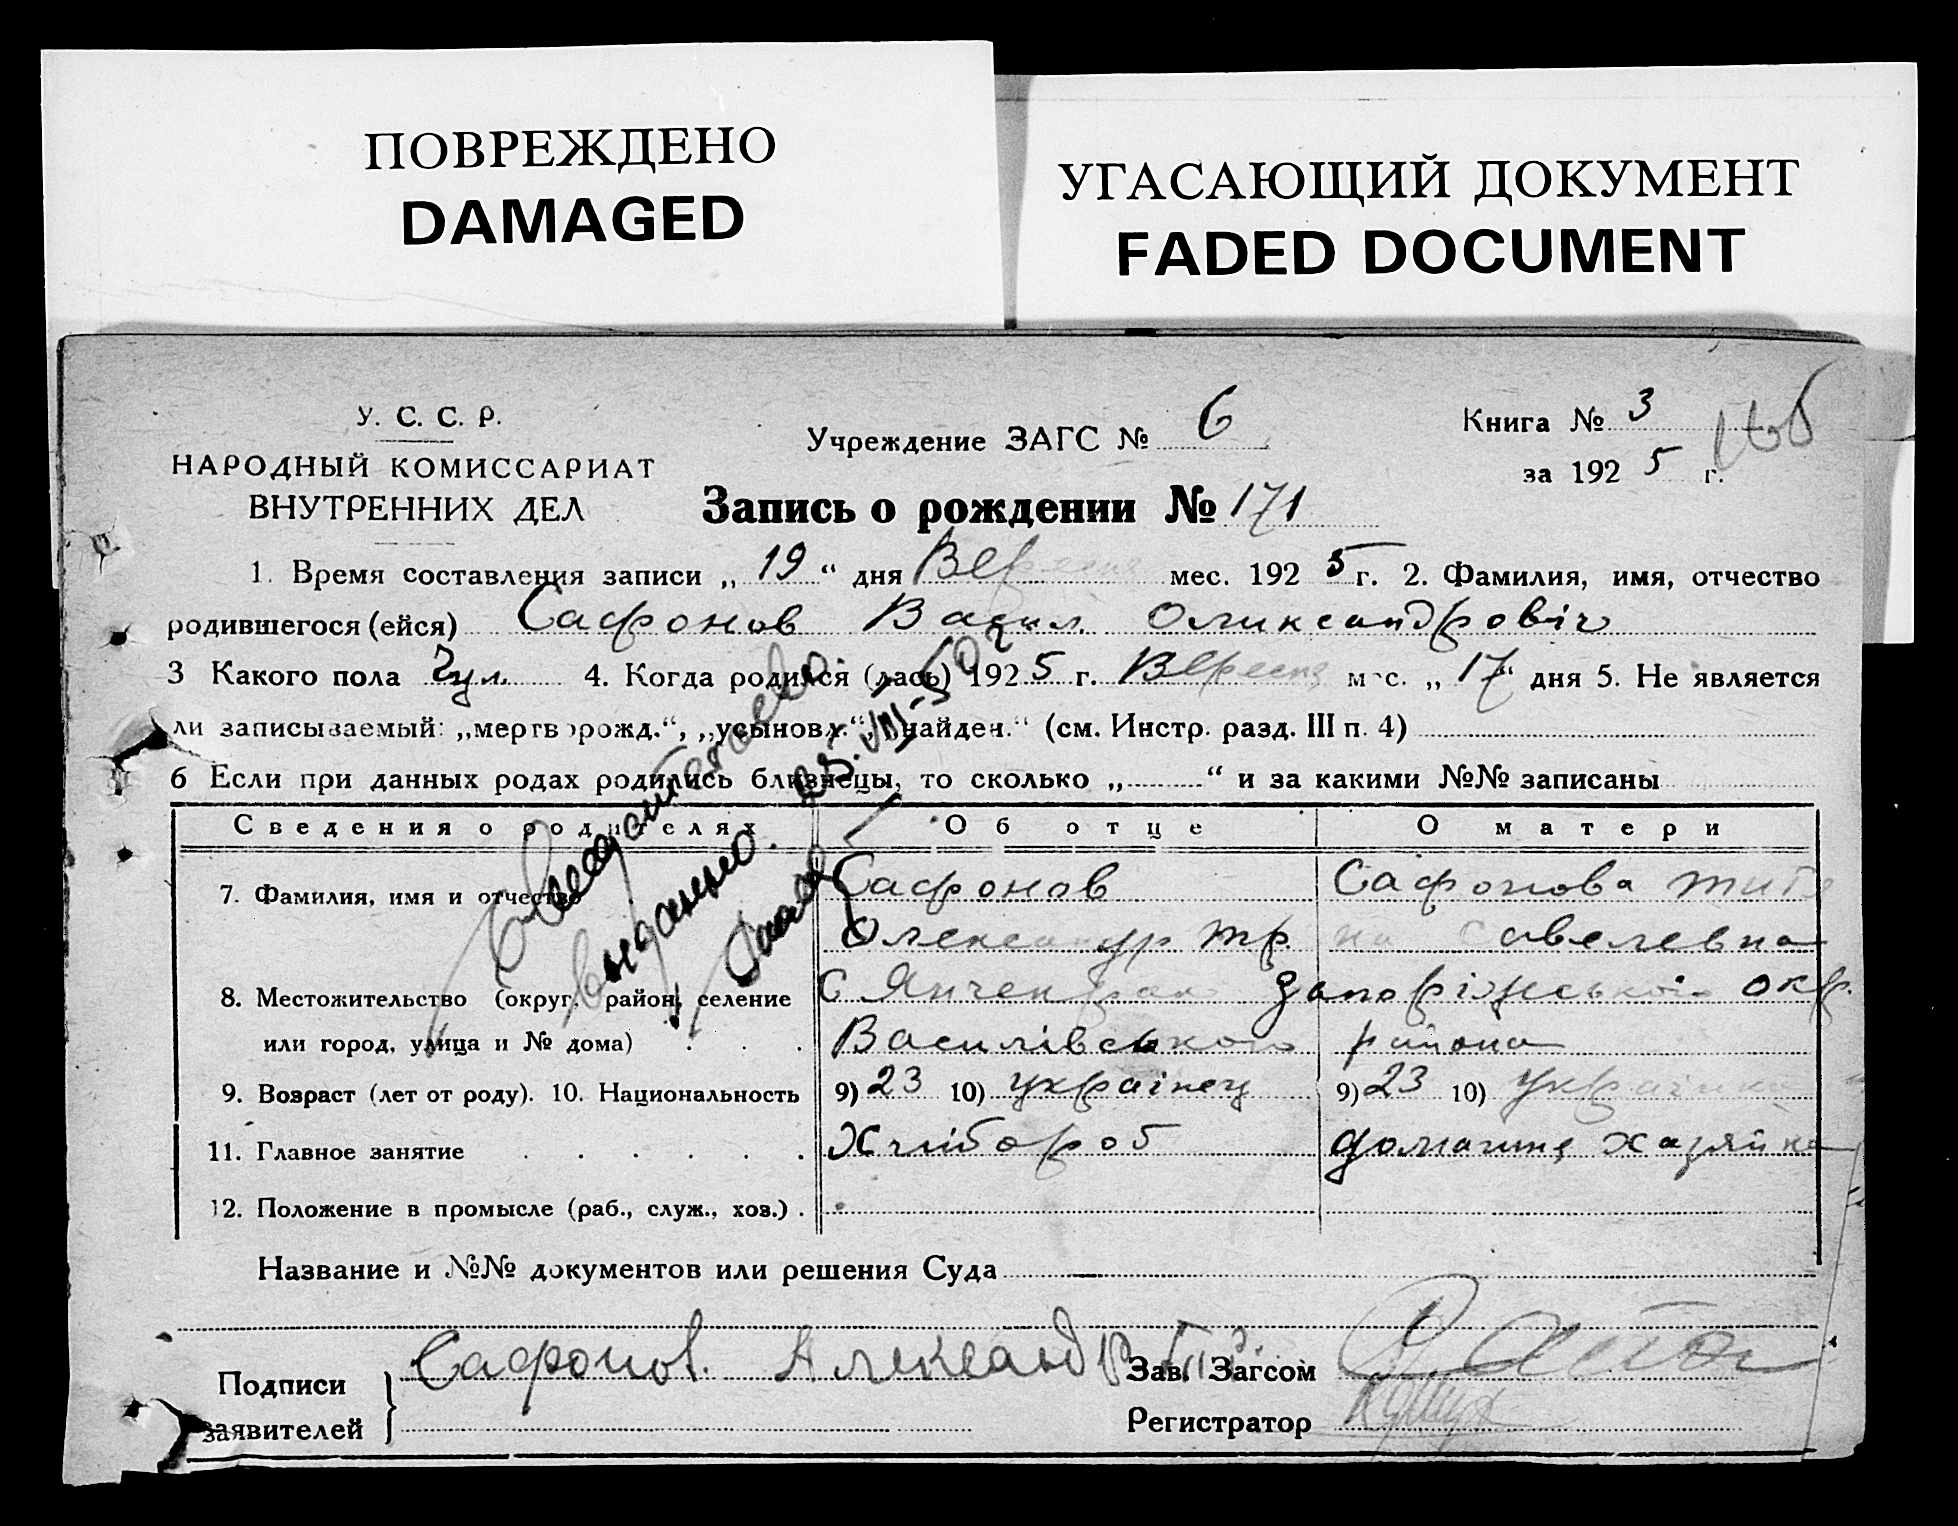 ПОВРЕЖДЕНО
DAMAGED
УГАСАЮЩИЙ ДОКУМЕНТ
FADED DOCUMENT
У. С. С. Р.
НАРОДНЫЙ КОМИССАРИАТ
ВНУТРЕННИХ ДЕЛ
Учреждение ЗАГС № 6
Книга № 3
за 192 5 г.
Запись о рождении № 171
1. Время составления записи „ 19 “ дня Вересня мес. 192 5 г. 2. Фамилия, имя, отчество
родившегося (ейся) Сафонов Васил. Олександровіч
3 Какого пола Чул. 4. Когда родился (лась) 192 5 г. Вересня мес. „ 17 “ дня 5. Не является
ли записываемый: „мертворожд.“, „усыновл.“, „найден.“ (см. Инстр. разд. III п. 4)
6 Если при данных родах родились близнецы, то сколько „ “ и за какими №№ записаны
выдано. 25.VIII-50г
Сведения о родителях Об отце О матери
7. Фамилия, имя и отчество Сафонов Сафонова
Олександр Тр. Савелевна
8. Местожительство (округ, район, селение С Янчекрак Запоріжської окр.
или город, улица и № дома) . . . Василівського района
9. Возраст (лет от роду). 10. Национальность 9) 23 10) українец 9) 23 10) українка
11. Главное занятие . . . . . . Хлібороб домашня хазяйка
12. Положение в промысле (раб., служ., хоз.) .
Название и №№ документов или решения Суда
Подписи заявителей } Сафонов. Александр
Зав. Загсом
Регистратор